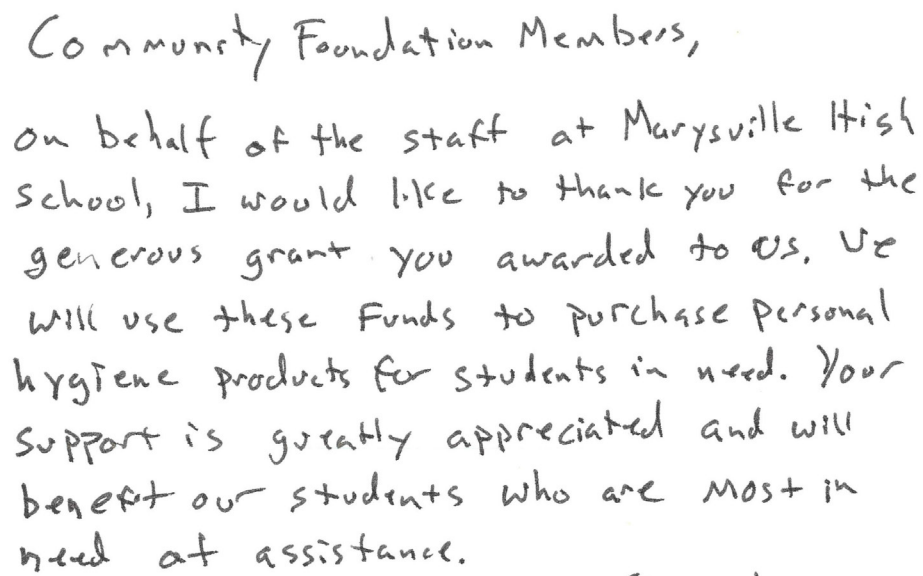 Community Foundation Members,
on behalf of the staff at Marysville High
School, I would like to thank you for the
generous grant you awarded to us. We
will use these Funds to purchase personal
hygiene products for students in need. Your
support is greatly appreciated and will
benefit our students who are most in
need of assistance.